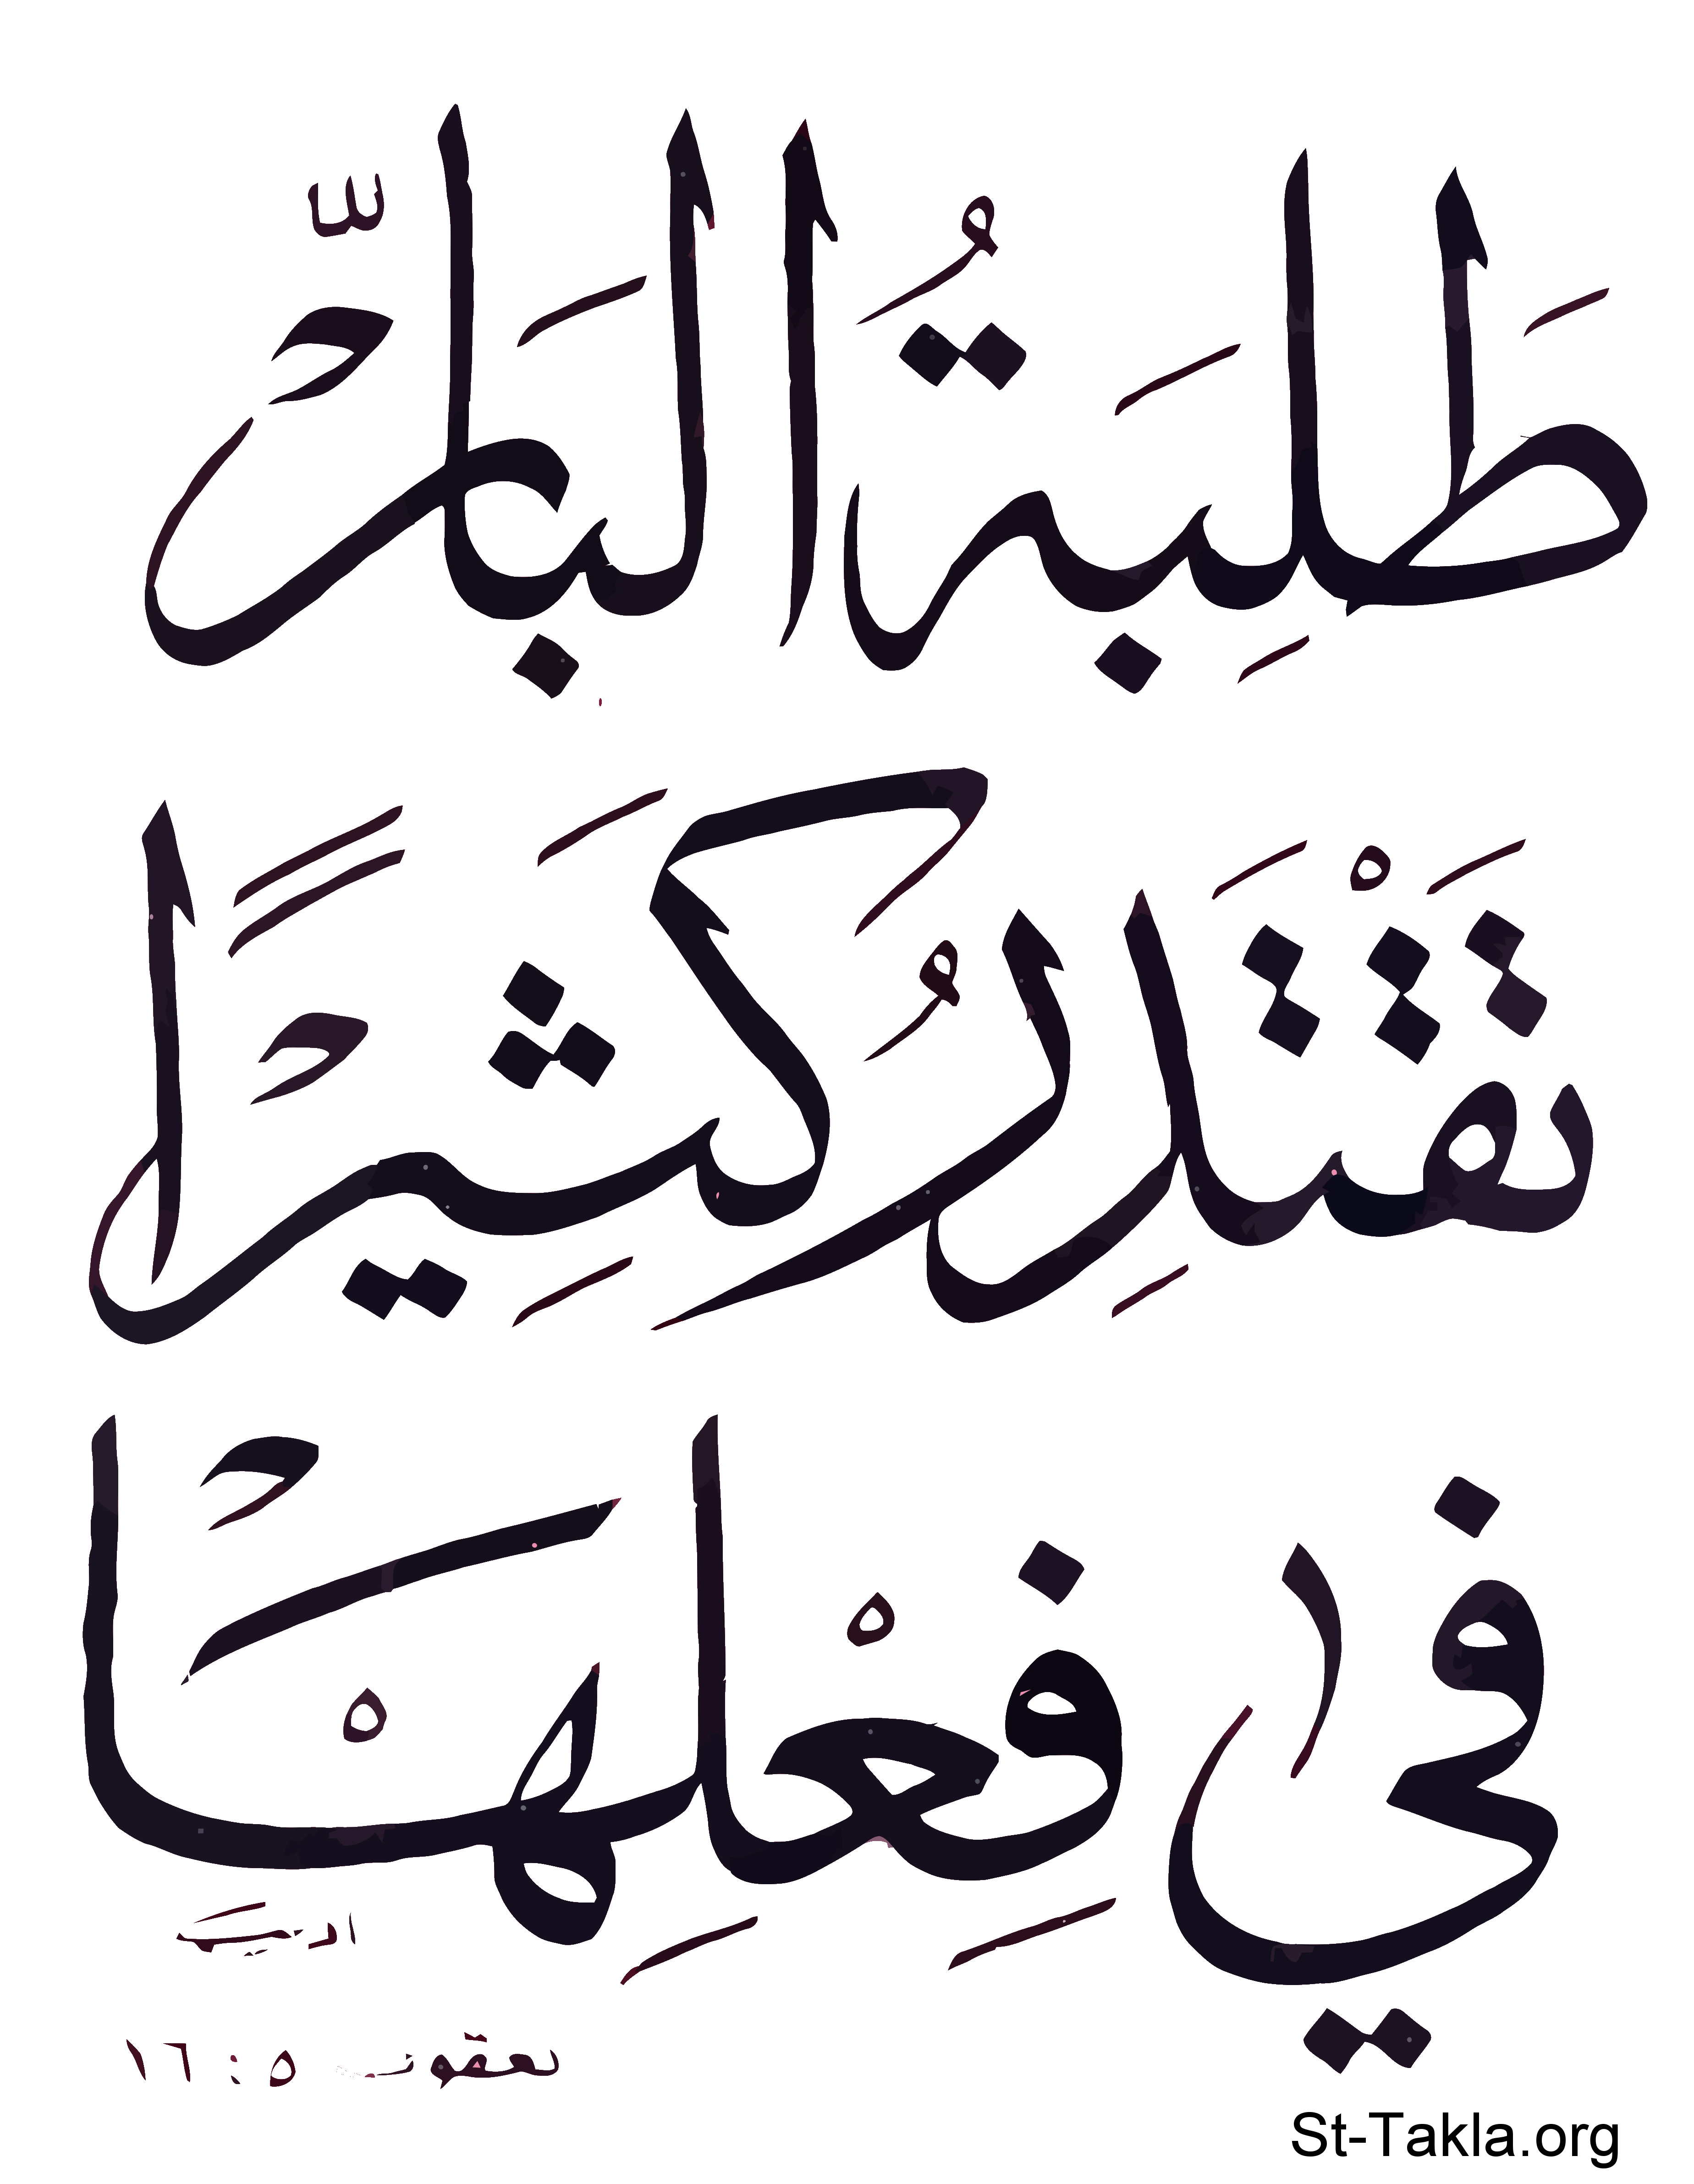 طَلِبَةُ البَارّ
تَقْتَدِرُ كَثِيرًا
في فِعْلِهَا
يعقوب ٥ : ١٦
St-Takla.org